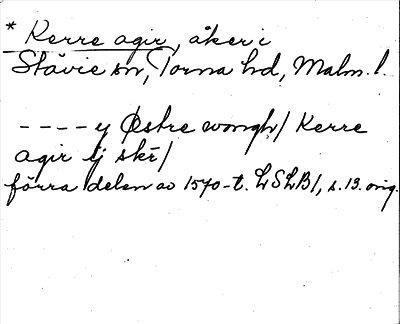 * Kerre agir, åker i
Stävie sn, Torna hd, Malm. l.
---- y Østre wongh / Kerre
agir ij skr̄ /
förra delen av 1570-t. LSLB1, s. 13. orig.